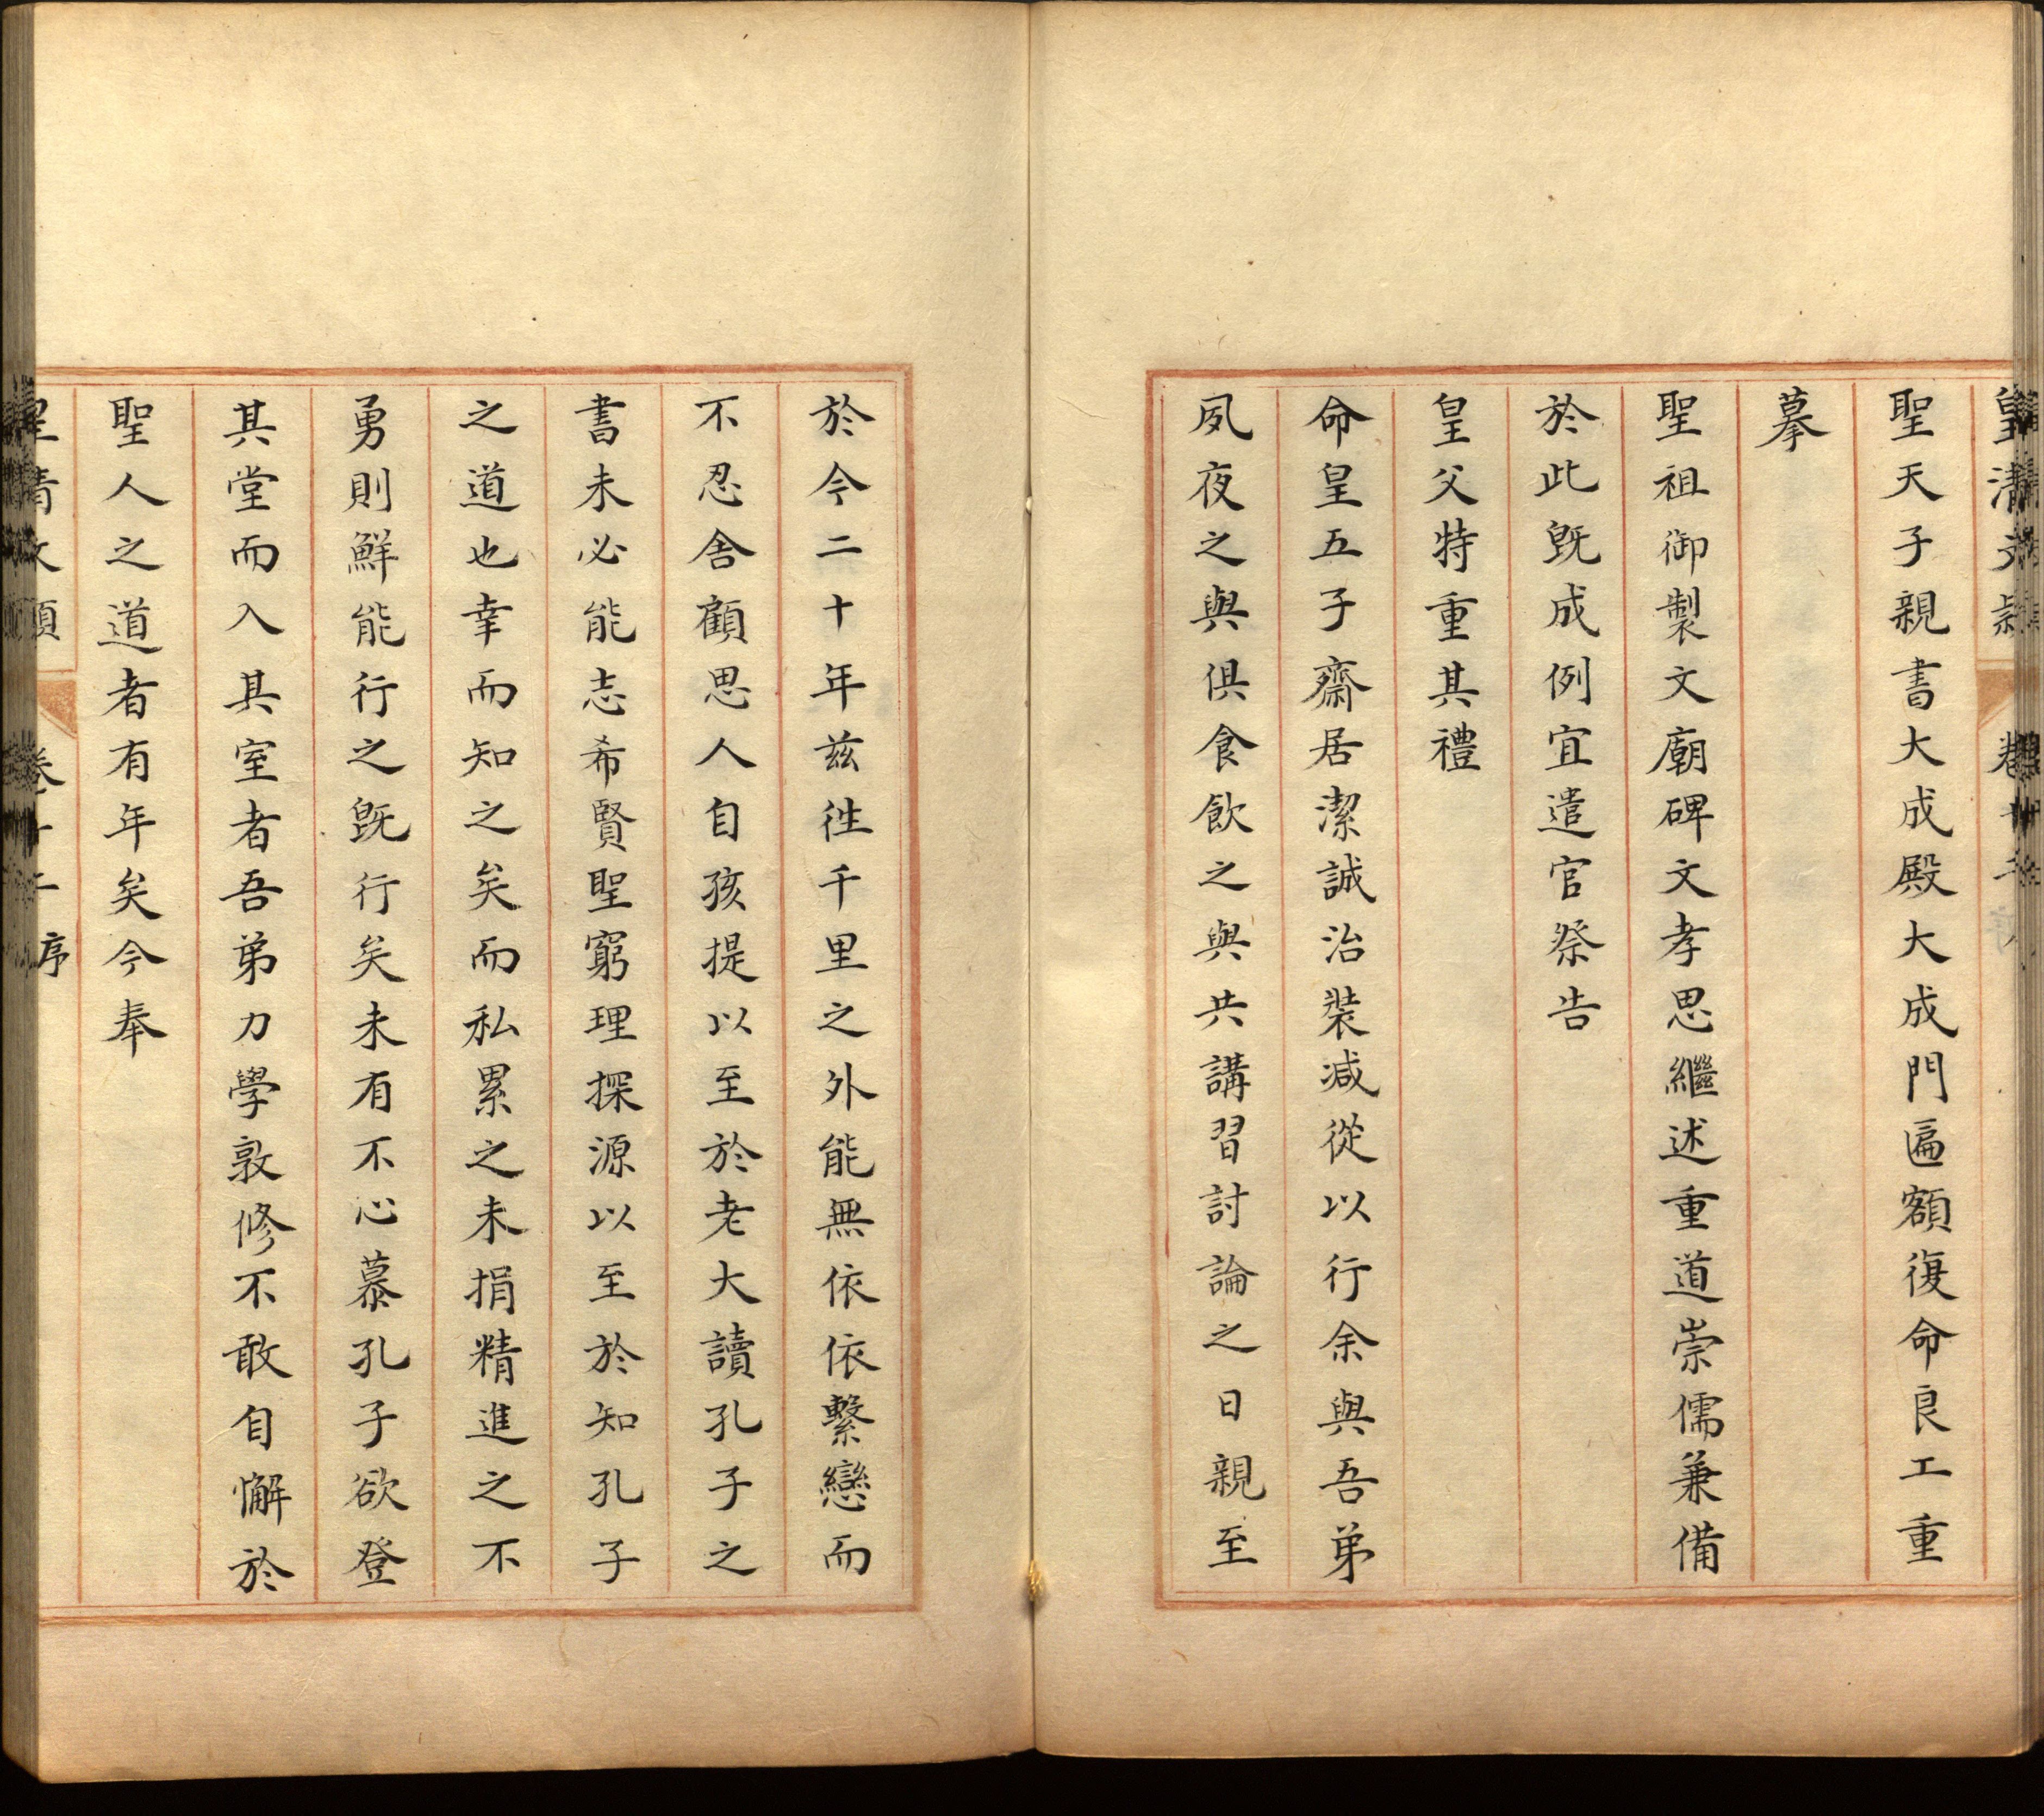 皇清文穎 卷十二
聖天子親書大成殿大成門匾額復命良工重
摹
聖祖御製文廟碑文孝思繼述重道崇儒兼備
於此既成例宜遣官祭告
皇父特重其禮
命皇五子齋居潔誠治裝減從以行余與吾弟
夙夜之與俱食飲之與共講習討論之日親至
於今二十年兹徃千里之外能無依依繫戀而
不忍舍顧思人自孩提以至於老大讀孔子之
書未必能志希賢聖窮理探源以至於知孔子
之道也幸而知之矣而私累之未捐精進之不
勇則鮮能行之既行矣未有不心慕孔子欲登
其堂而入其室者吾弟力學敦修不敢自懈於
聖人之道者有年矣今奉
皇清文穎 卷十二 序